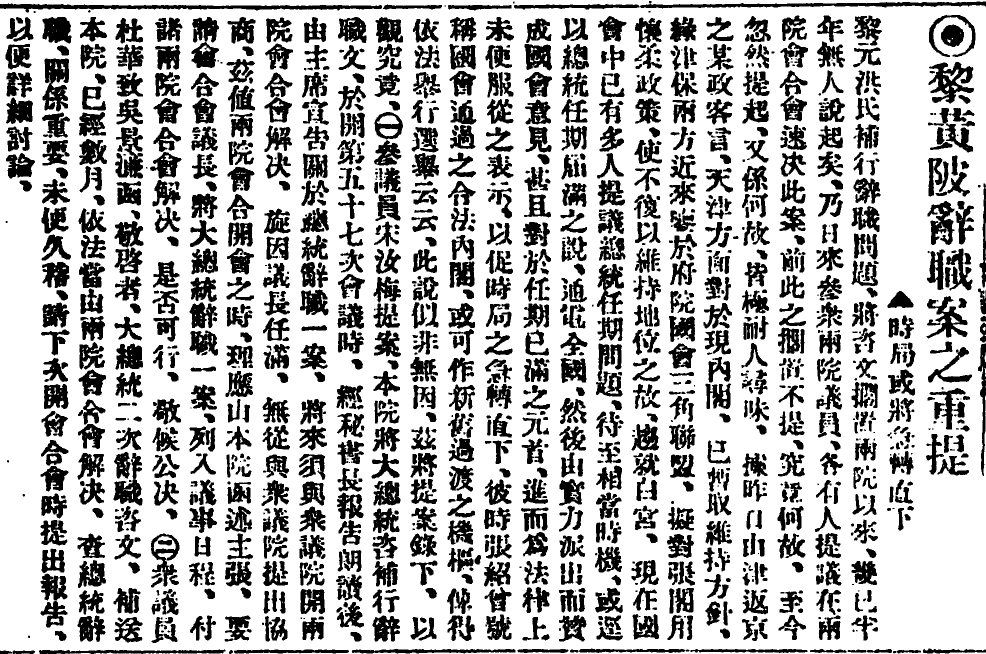 ◉黎黃陂辭職案之重提
▲時局或將急轉直下
黎元洪氏補行辭職問題、將咨文擱置兩院以來、幾已半
年無人說起矣、乃日來參衆兩院議員、各有人提議在兩
院會合會速決此案、前此之擱置不提、究竟何故、至今
忽然提起、又係何故、皆極耐人尋味、據昨日由津返京
之某政客言、天津方面對於現內閣、已暫取維持方針、
緣津保兩方近來鑒於府院國會三角聯盟、擬對張閣用
懷柔政策、使不復以維持地位之故、趨就白宮、現在國
會中已有多人提議總統任期問題、待至相當時機、或逕
以總統任期屆滿之說、通電全國、然後由實力派出而贊
成國會意見、甚且對於任期已滿之元首、進而爲法律上
未便服從之表示、以促時局之急轉直下、彼時張紹曾號
稱國會通過之合法內閣、或可作新舊過渡之機樞、俾得
依法舉行選舉云云、此說似非無因、茲將提案錄下、以
觀究竟、㊀參議員宋汝梅提案、本院將大總統咨補行辭
職文、於開第五十七次會議時、經秘書長報告朗讀後、
由主席宣告關於總統辭職一案、將來須與衆議院開兩
院會合會解決、旋因議長任滿、無從與衆議院提出協
商、茲值兩院會合開會之時、理應由本院函述主張、要
請會合會議長、將大總統辭職一案、列入議事日程、付
諸兩院會合會解決、是否可行、敬候公決、㊁衆議員
杜華致吳景濂函、敬啓者、大總統二次辭職咨文、補送
本院、已經數月、依法當由兩院會合會解決、查總統辭
職、關係重要、未便久稽、請下次開會合會時提出報告、
以便詳細討論、